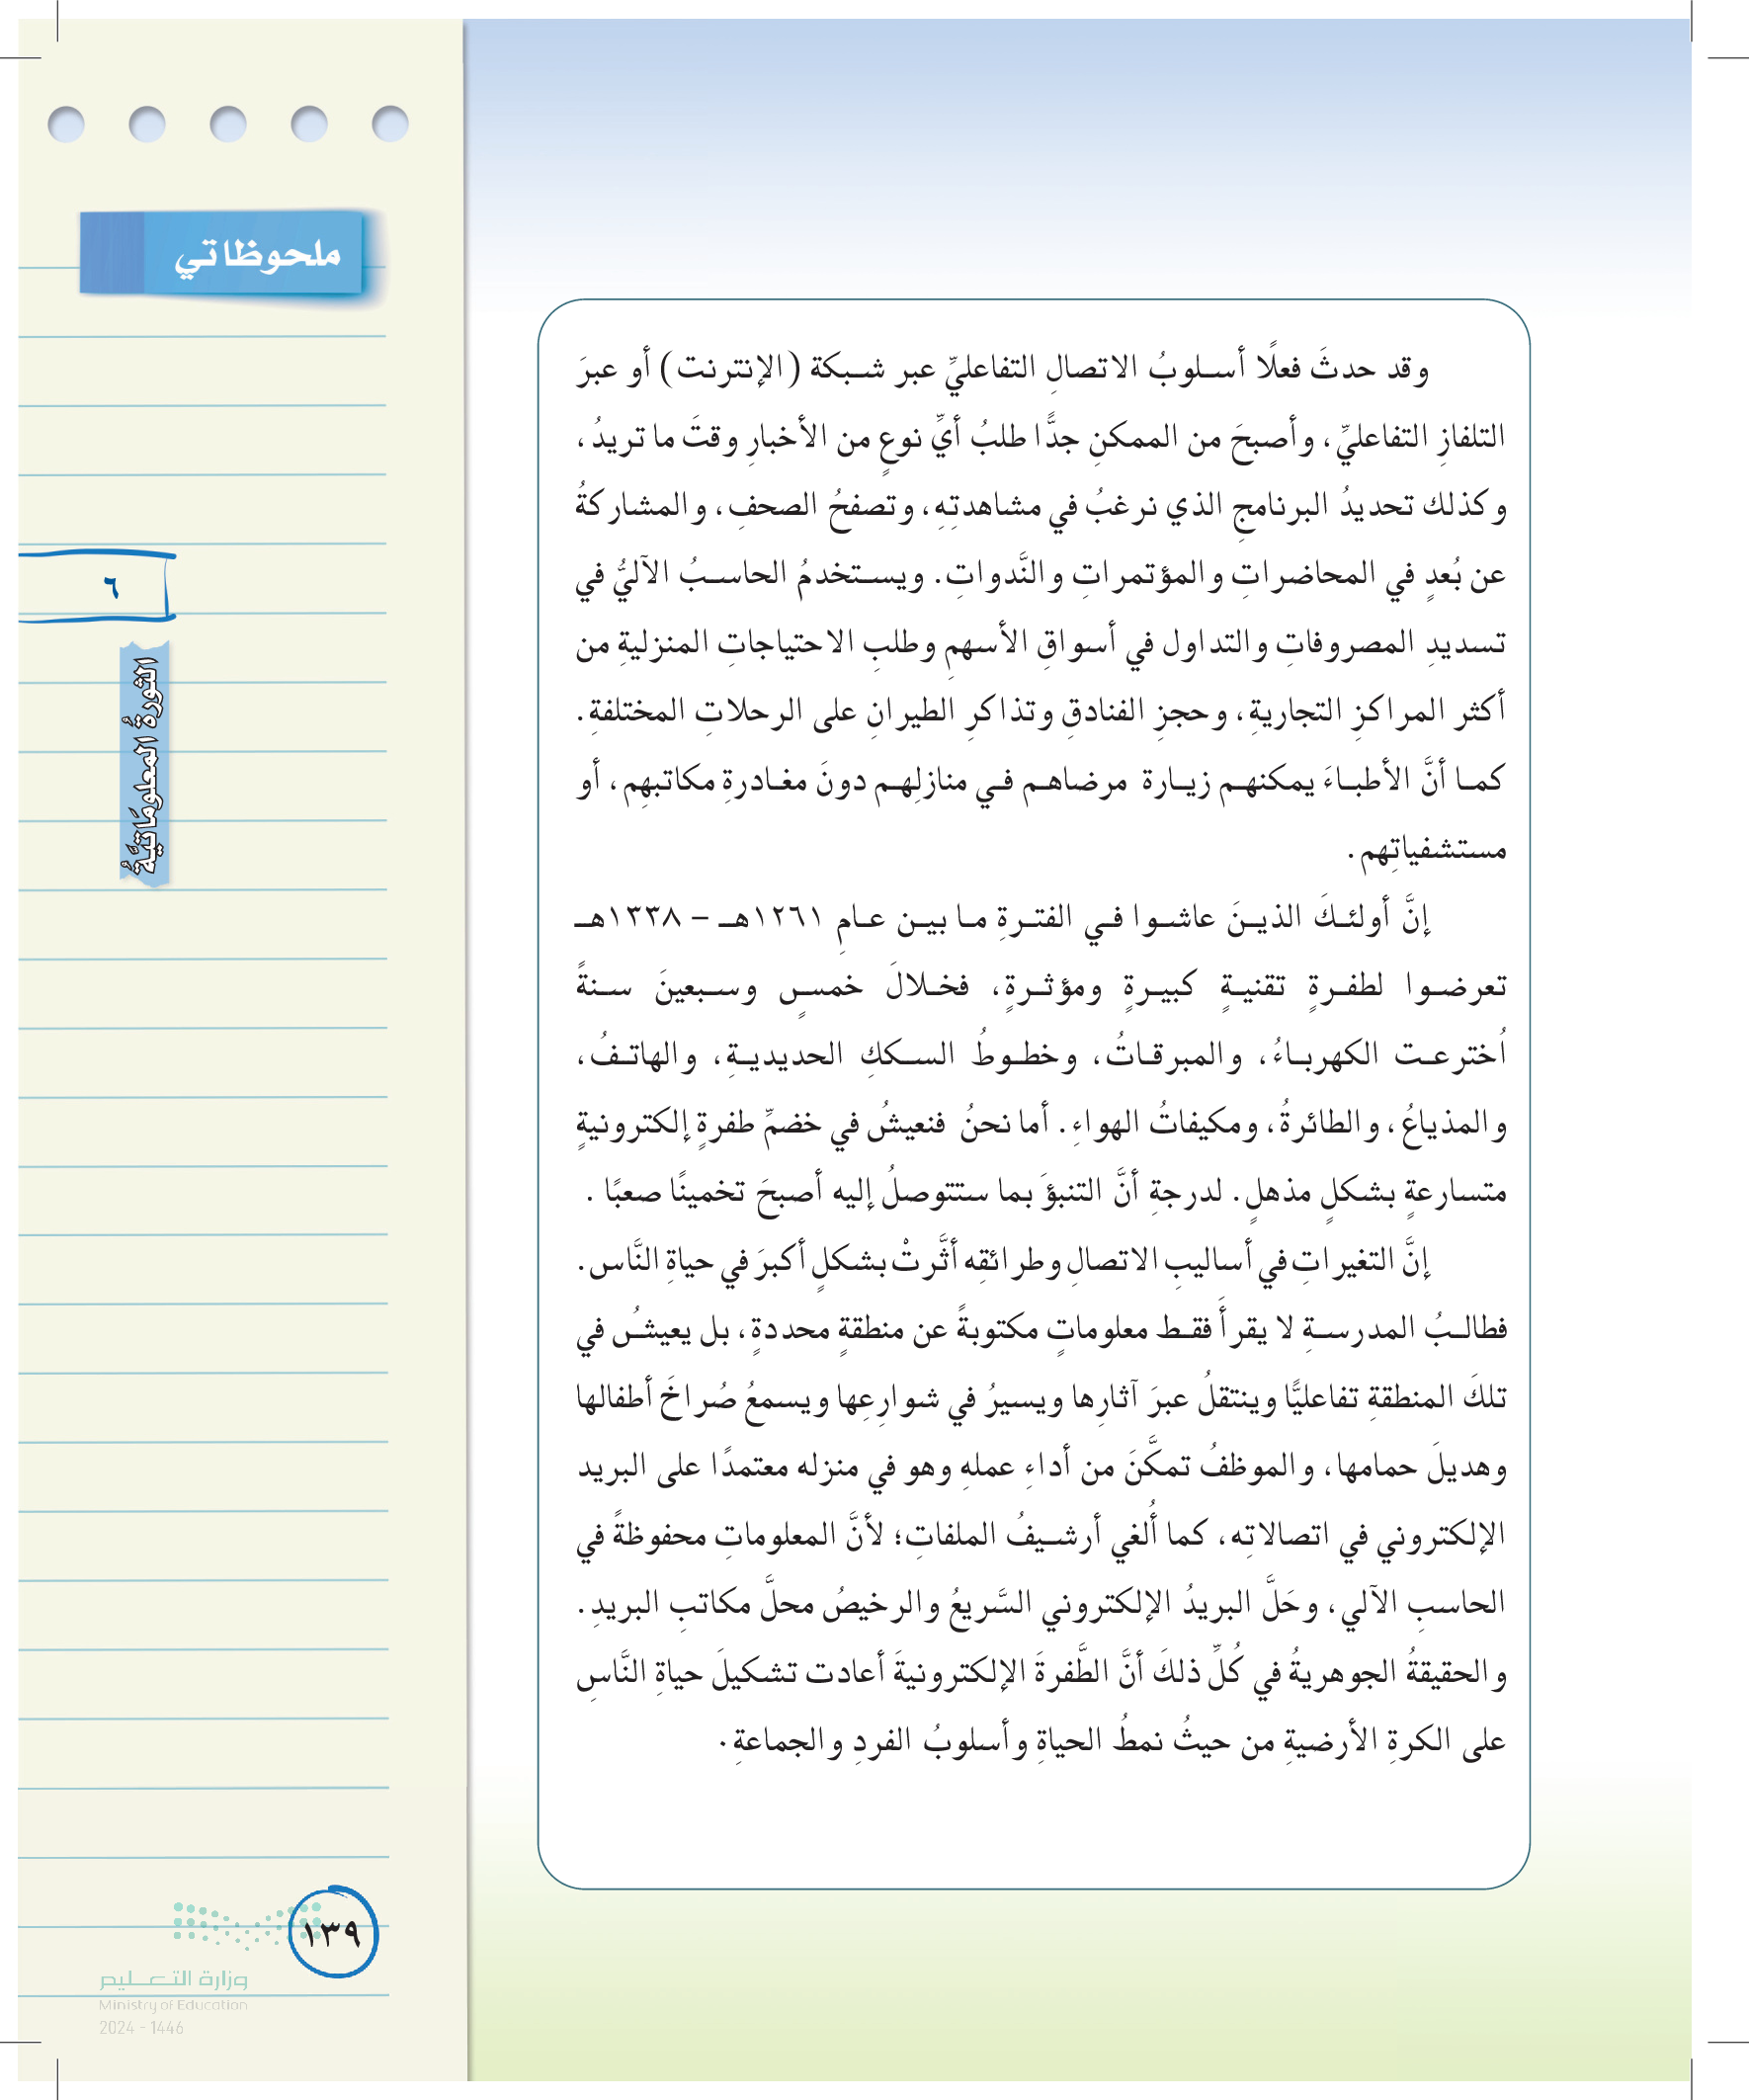 ملحوظاتي
وقد حدثَ فعلًا أسلوبُ الاتصالِ التفاعليِّ عبر شبكة (الإنترنت) أو عبرَ
التلفازِ التفاعليِّ، وأصبحَ من الممكنِ جدًّا طلبُ أيِّ نوعٍ من الأخبارِ وقتَ ما تريدُ،
وكذلك تحديدُ البرنامجِ الذي نرغبُ في مشاهدتِهِ، وتصفحُ الصحفِ، والمشاركةُ
عن بُعدٍ في المحاضراتِ والمؤتمراتِ والنَّدواتِ. ويستخدمُ الحاسبُ الآليُّ في
تسديدِ المصروفاتِ والتداول في أسواقِ الأسهمِ وطلبِ الاحتياجاتِ المنزليةِ من
أكثر المراكزِ التجاريةِ، وحجزِ الفنادقِ وتذاكرِ الطيرانِ على الرحلاتِ المختلفةِ.
كما أنَّ الأطباءَ يمكنهم زيارة مرضاهم في منازلِهم دونَ مغادرةِ مكاتبهِم، أو
مستشفياتِهم.
إنَّ أولئكَ الذينَ عاشوا في الفترةِ ما بين عامِ ١٢٦١هـ - ١٣٣٨هـ
تعرضوا لطفرةٍ تقنيةٍ كبيرةٍ ومؤثرةٍ، فخلالَ خمسٍ وسبعينَ سنةً
اُخترعت الكهرباءُ، والمبرقاتُ، وخطوطُ السككِ الحديديةِ، والهاتفُ،
والمذياعُ، والطائرةُ، ومكيفاتُ الهواءِ. أما نحنُ فنعيشُ في خضمِّ طفرةٍ إلكترونيةٍ
متسارعةٍ بشكلٍ مذهلٍ. لدرجةِ أنَّ التنبؤَ بما ستتوصلُ إليه أصبحَ تخمينًا صعبًا .
إنَّ التغيراتِ في أساليبِ الاتصالِ وطرائقِه أثَّرتْ بشكلٍ أكبرَ في حياةِ النَّاس.
فطالبُ المدرسةِ لا يقرأَ فقط معلوماتٍ مكتوبةً عن منطقةٍ محددةٍ، بل يعيشُ في
تلكَ المنطقةِ تفاعليًّا وينتقلُ عبرَ آثارِها ويسيرُ في شوارعِها ويسمعُ صُراخَ أطفالها
وهديلَ حمامها، والموظفُ تمكَّنَ من أداءِ عملهِ وهو في منزله معتمدًا على البريد
الإلكتروني في اتصالاتِه، كما أُلغي أرشيفُ الملفاتِ؛ لأنَّ المعلوماتِ محفوظةً في
الحاسبِ الآلي، وحَلَّ البريدُ الإلكتروني السَّريعُ والرخيصُ محلَّ مكاتبِ البريدِ.
والحقيقةُ الجوهريةُ في كُلِّ ذلكَ أنَّ الطَّفرةَ الإلكترونيةَ أعادت تشكيلَ حياةِ النَّاسِ
على الكرةِ الأرضيةِ من حيثُ نمطُ الحياةِ وأسلوبُ الفردِ والجماعةِ.
٦
الثورةُ المعلومَاتيَّةُ
١٣٩
وزارة التعـليم
Ministry of Education
2024 - 1446